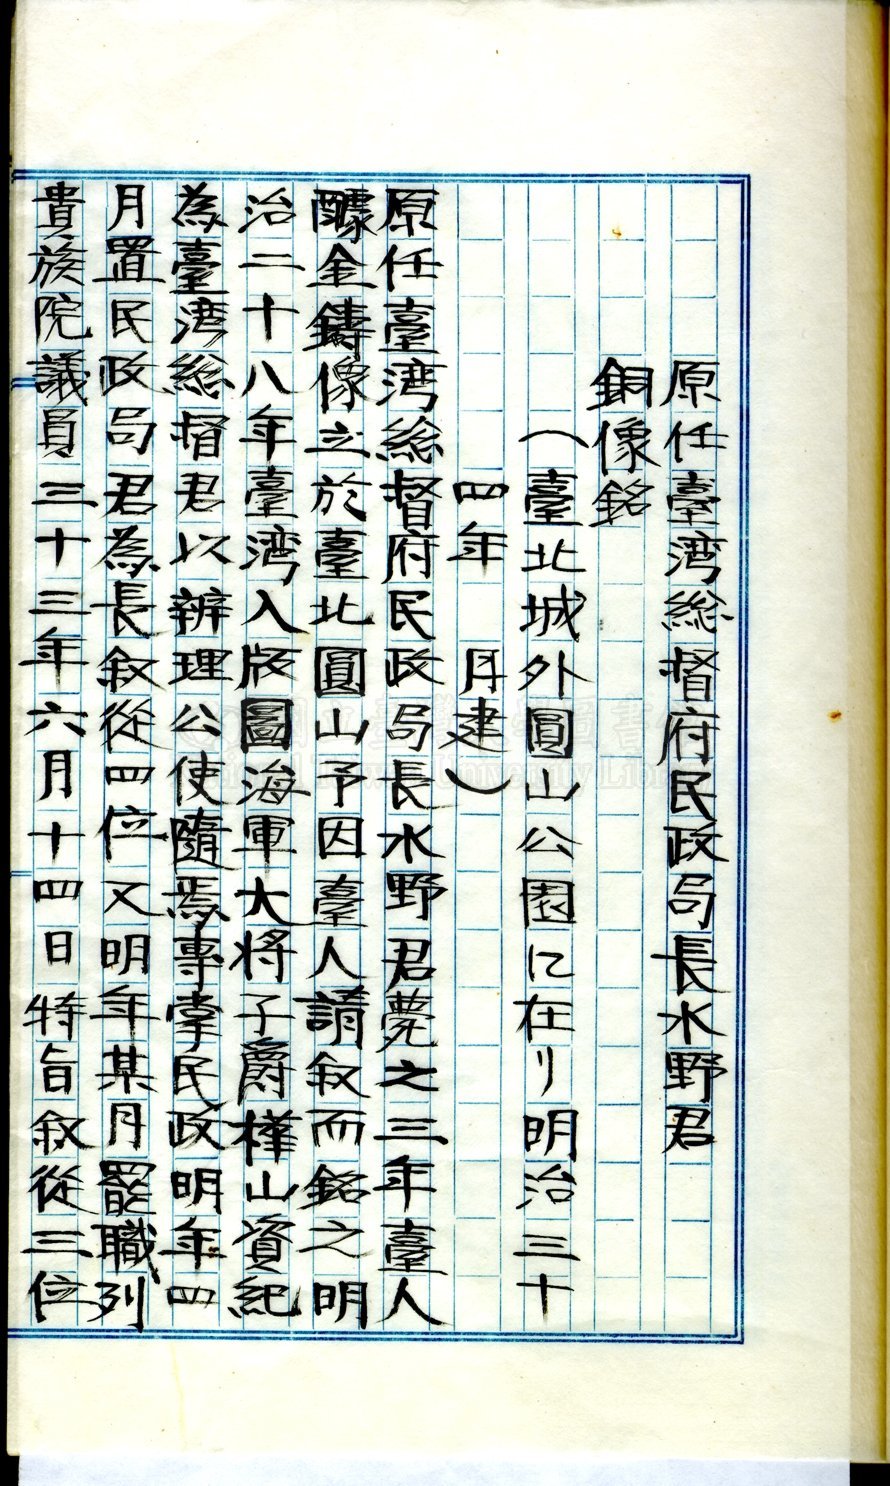 原任臺湾総督府民政局長水野君
銅像銘
（臺北城外圓山公園に在り明治三十
四年　月建）
原任臺湾総督府民政局長水野君薨之三年臺人
醵金鑄像立於臺北圓山予因臺人請叙而銘之明
治二十八年臺湾入版圖海軍大将子爵樺山資紀
為臺湾総督君以辨理公使隨焉專掌民政明年四
月置民政局君為長叙從四位又明年某月罷職列
貴族院議員三十三年六月十四日特旨叙從三位